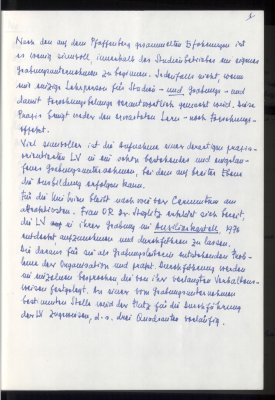 1
Nach den auf dem Pfaffenberg gesammelten Erfahrungen ist
es wenig sinnvoll, innerhalb des Studienbetriebes ein eigenes
Grabungsunternehmen zu beginnen. Jedenfalls nicht, wenn
nur einzige Lehrperson für Studien- und Grabungs- und
damit Forschungsbelange verantwortlich gemacht wird. Diese
Praxis bringt weder den erwarteten Lern- noch Forschungs-
effekt.
Viel sinnvoller ist die Aufnahme einer derartigen praxis-
orientierten LV in ein schon bestehendes und
Grabungsunternehmen, bei dem auf breiter Ebene
die Ausbildung erfolgen kann.
Für die bleibt nach wie vor Carnuntum am
Frau OR Dr. Stiglitz erklärt sich bereit,
die LV in ihrer Grabung im Auxiliarkastell 1976
entdeckt aufzunehmen und durchführen zu lassen.
Die daraus für sie als Grabungsleiterin entstehenden Prob-
leme der Organisation und prakt. Durchführung werden
im einzelnen besprochen die von ihr verlangten Verhaltens-
weisen festgelegt. An einer vom Grabungsunternehmen
bestimmten Stelle wird der Platz für die Durchführung
der LV zugewiesen, d.s. drei Quadranten vorläufig.